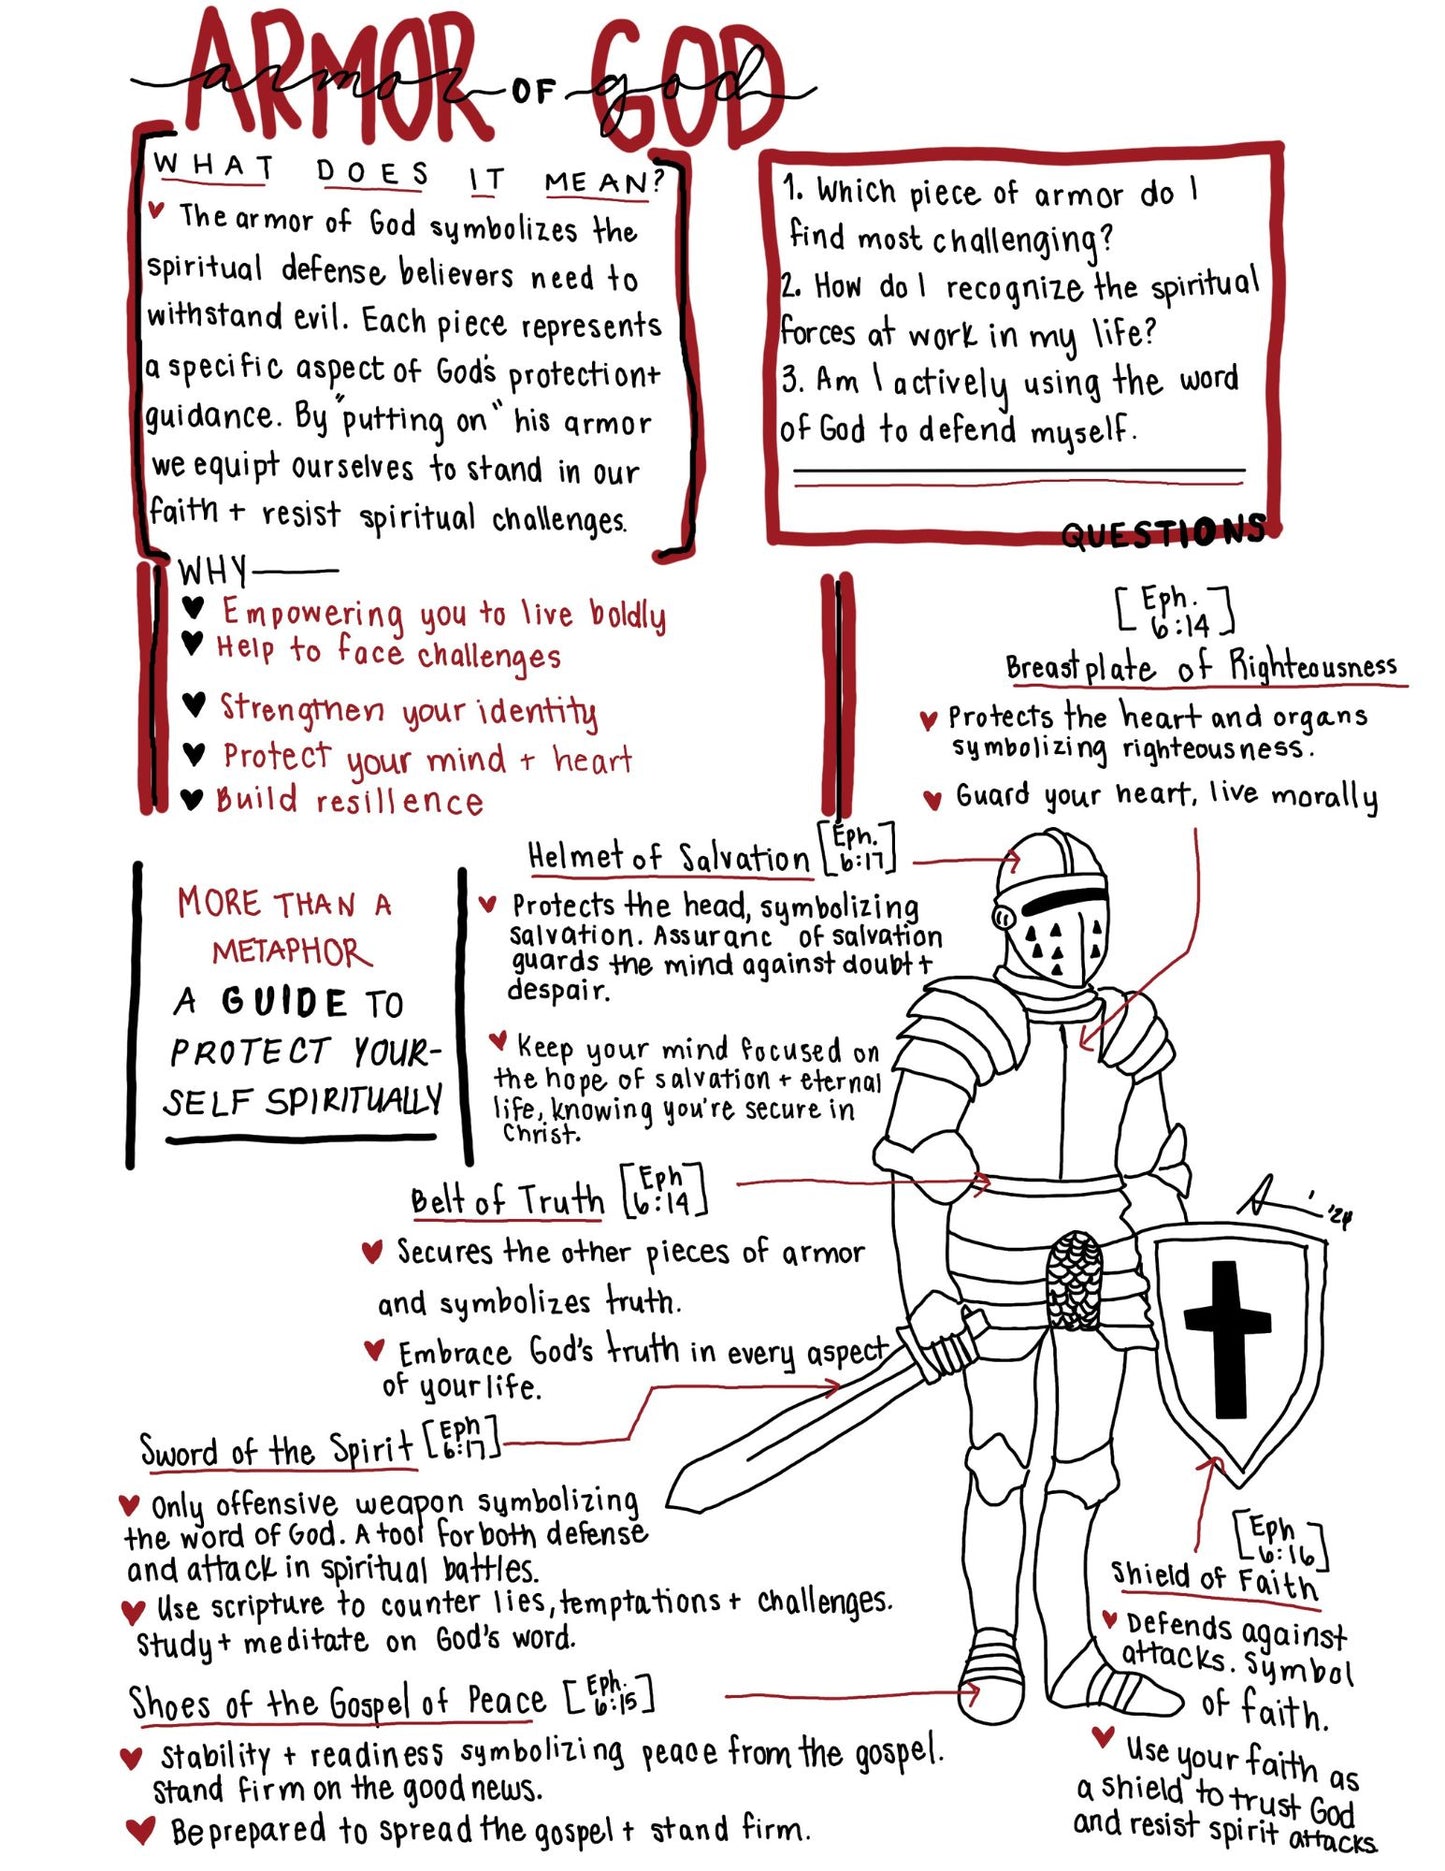 ARMOR OF GOD
armor god
WHAT DOES IT MEAN?
The armor of God symbolizes the
spiritual defense believers need to
withstand evil. Each piece represents
a specific aspect of God's protection+
guidance. By "putting on" his armor
we equipt ourselves to stand in our
faith + resist spiritual challenges.
1. Which piece of armor do I
find most challenging?
2. How do I recognize the spiritual
forces at work in my life?
3. Am I actively using the word
of God to defend myself.
QUESTIONS
WHY
Empowering you to live boldly
Help to face challenges
Strengthen your identity
Protect your mind + heart
Build resillence
[Eph.
6:14]
Breastplate of Righteousness
Protects the heart and organs
symbolizing righteousness.
Guard your heart, live morally
MORE THAN A
METAPHOR
A GUIDE TO
PROTECT YOUR-
SELF SPIRITUALLY
Helmet of Salvation [Eph.
6:17]
Protects the head, symbolizing
salvation. Assuranc of salvation
guards the mind against doubt+
despair.
Keep your mind focused on
the hope of salvation + eternal
life, knowing you're secure in
Christ.
Belt of Truth [Eph
6:14]
Secures the other pieces of armor
and symbolizes truth.
Embrace God's truth in every aspect
of your life.
'24
Sword of the Spirit [Eph
6:17]
Only offensive weapon symbolizing
the word of God. A tool for both defense
and attack in spiritual battles.
Use scripture to counter lies, temptations + challenges.
Study + meditate on God's word.
Shoes of the Gospel of Peace [Eph.
6:15]
Stability + readiness symbolizing peace from the gospel.
Stand firm on the good news.
Be prepared to spread the gospel + stand firm.
[Eph
6:16]
Shield of Faith
Defends against
attacks. Symbol
of faith.
Use your faith as
a shield to trust God
and resist spirit attacks